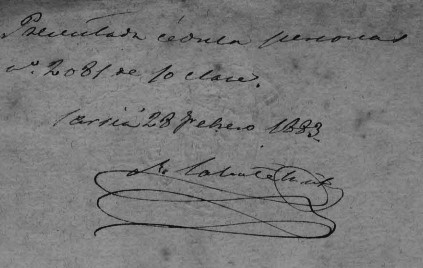 Presentada cédula personal
nº. 2081 de 10 clase.
28 Febrero 1883